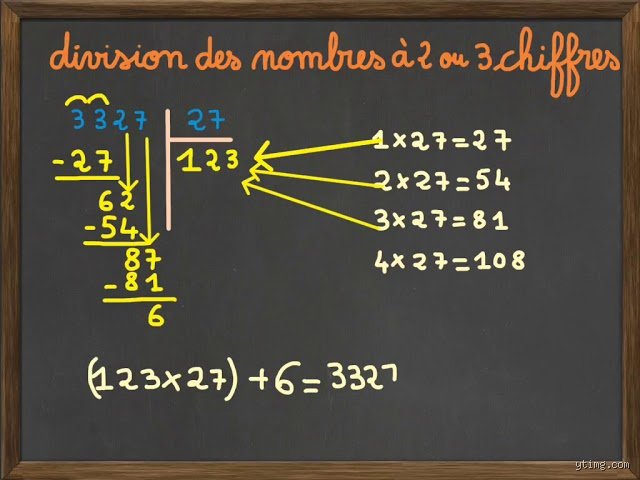 division des nombres à 2 ou 3 chiffres
3327 27
-27 123
62
-54
87
-81
6
1×27=27
2×27=54
3×27=81
4×27=108
(123×27)+6=3327
ytimg.com